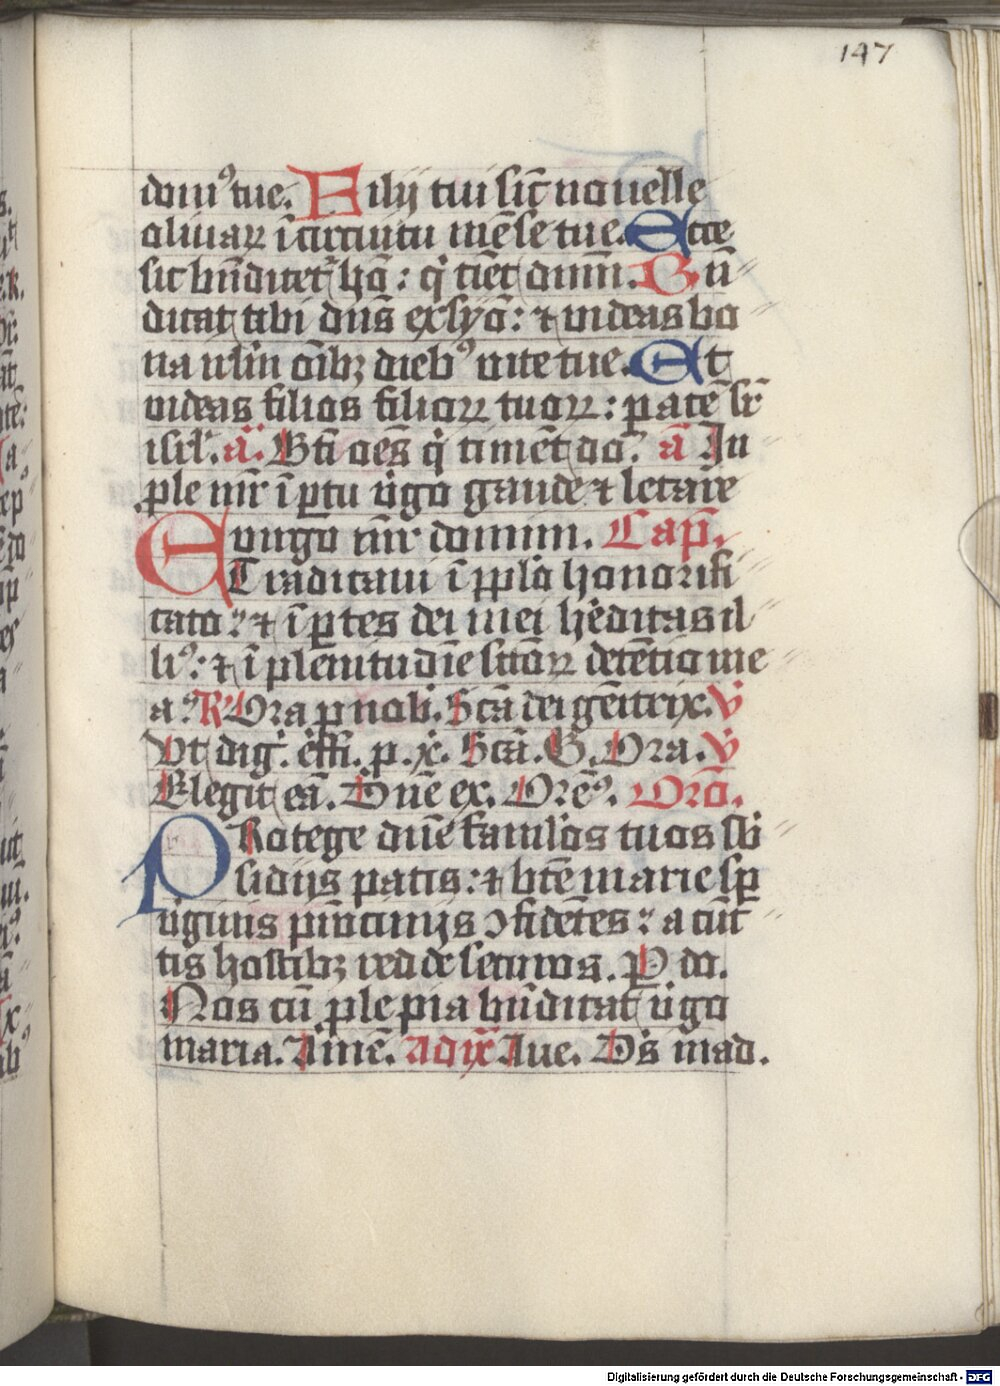 147
domꝰ tue. Filij tui sic̄ nouelle
oliuaꝝ ī circuitu mēse tue. Ecce
sic bn̄dicet᷑ hō: q̇ tiēt dnm̄. Bn̄
dicat tibi dn̄s ex syō: ⁊ uideas bo
na irlm̄ oībꝫ diebꝰ uite tue. Et
uideas filios filioꝝ tuoꝝ: pacē sr̄
isrl̄. a᷑. Bt̄i oēs q̇ timēt do᷑. ā In
ꝑle mr̄ ī ꝑtu u̇go gaude ⁊ letare
Eu uirgo mr̄ domini. Cap̄.
ET radicaui ī pplo honorifi
cato: ⁊ ī ꝑtes dei mei he̊ditas il
liꝰ: ⁊ ī plenitudīe sctōꝝ detētio me
a. R Ora p nob. Sc̄a dei gēitrix. V
Vt dig᷑. effi. p. x̄. Sc̄a. G. Ora. V
Elegit eā. Dn̄e ex. Orēꝰ. Orō.
PRotege dn̄e famlos tuos sb
sidijs pacis: ⁊ bt̄e marie sꝑ
u̇ginis pr̄ocinijs ꝯfidētes: a cūc
tis hostibꝫ redde securos. P do.
Nos cū ꝑle pia bn̄dicat u̇go
maria. Amē. Ad ix̄ Aue. Ds̄ in ad.
Digitalisierung gefördert durch die Deutsche Forschungsgemeinschaft - DFG